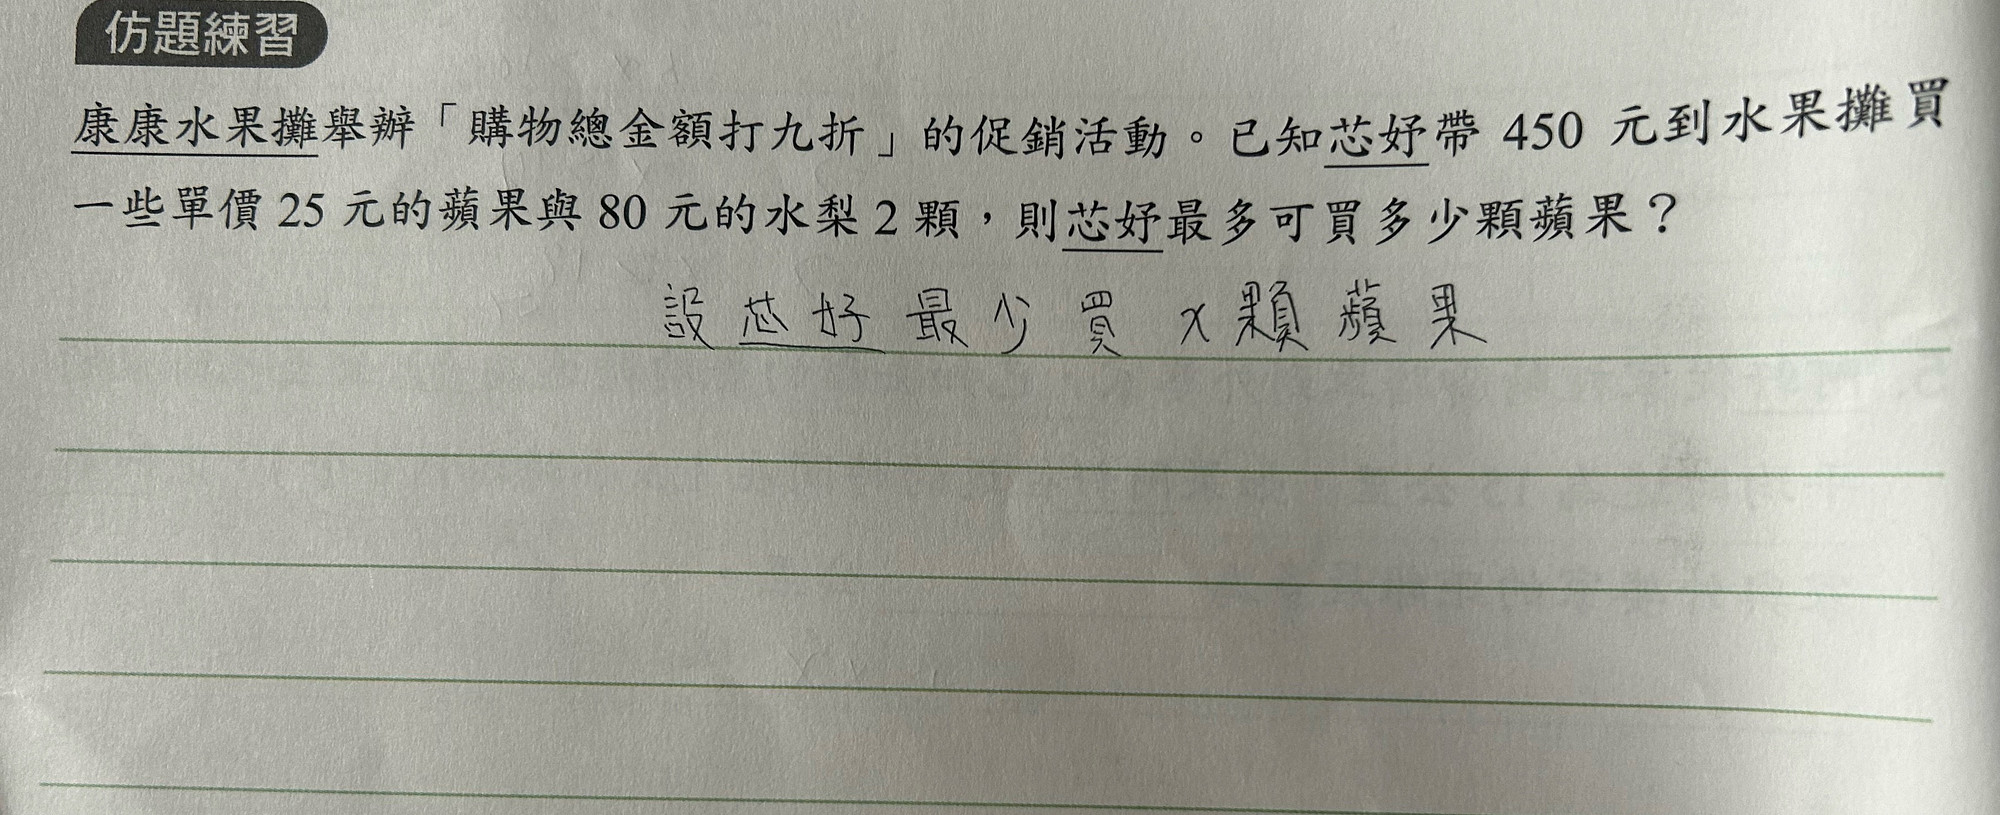 仿題練習
康康水果攤舉辦「購物總金額打九折」的促銷活動。已知芯妤帶 450 元到水果攤買
一些單價 25 元的蘋果與 80 元的水梨 2 顆，則芯妤最多可買多少顆蘋果？
設芯妤最少買 x 顆蘋果